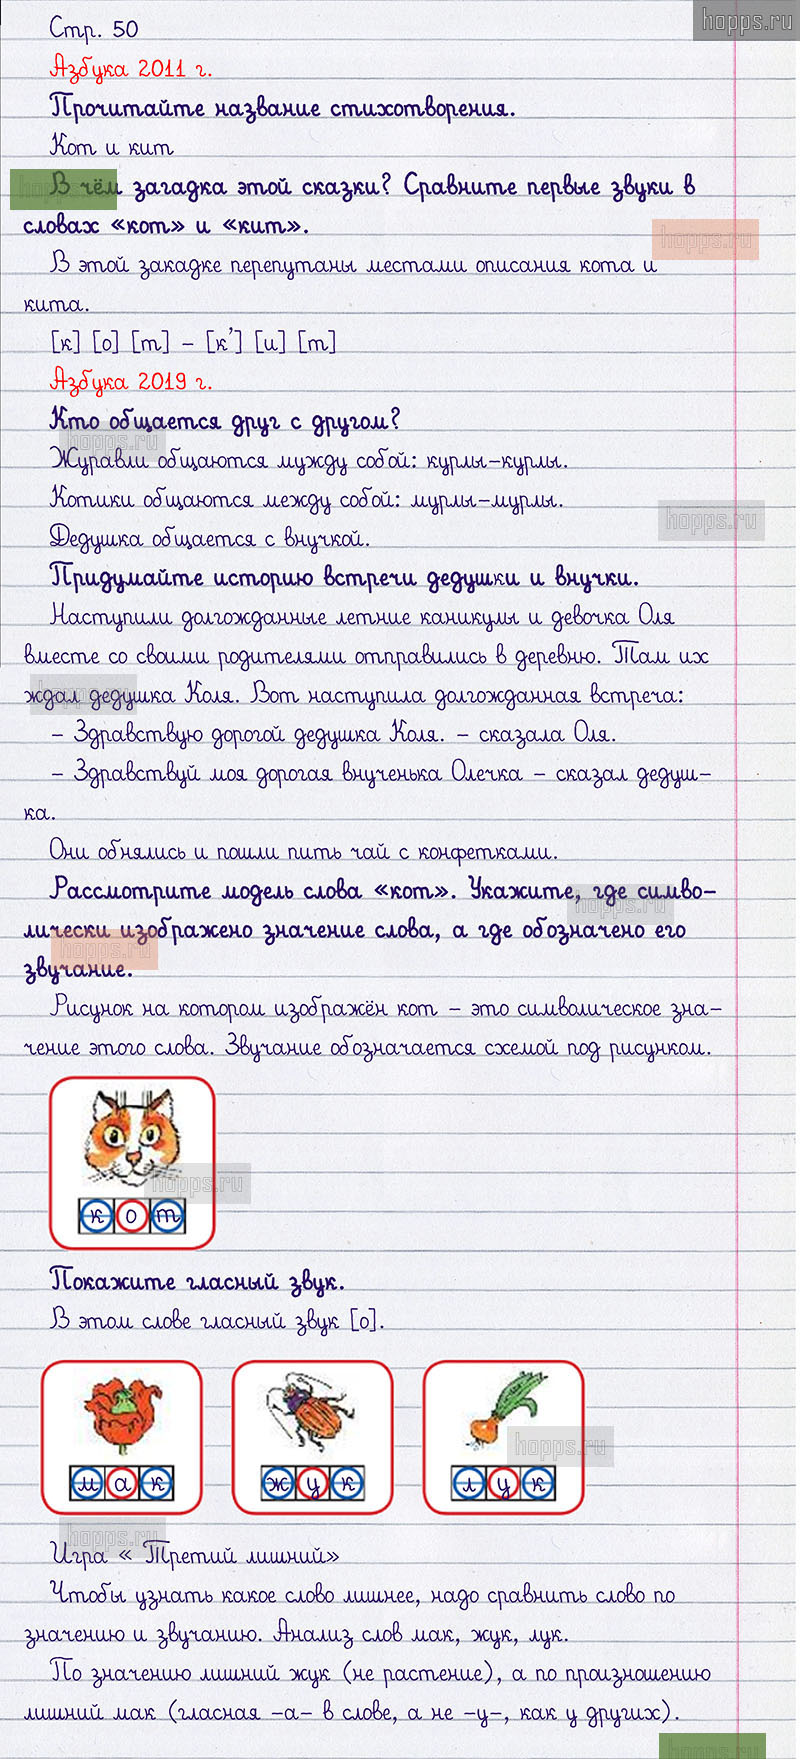 hopps.ru
Стр. 50
Азбука 2011 г.
Прочитайте название стихотворения.
Кот и кит
hopps.ru
В чём загадка этой сказки? Сравните первые звуки в
словах «кот» и «кит».
hopps.ru
В этой закадке перепутаны местами описания кота и
кита.
[к] [о] [т] – [к’] [и] [т]
Азбука 2019 г.
Кто общается друг с другом?
hopps.ru
Журавли общаются мужду собой: курлы-курлы.
Котики общаются между собой: мурлы-мурлы.
hopps.ru
Дедушка общается с внучкой.
Придумайте историю встречи дедушки и внучки.
Наступили долгожданные летние каникулы и девочка Оля
вместе со своими родителями отправились в деревню. Там их
ждал дедушка Коля. Вот наступила долгожданная встреча:
hopps.ru
– Здравствую дорогой дедушка Коля. – сказала Оля.
– Здравствуй моя дорогая внученька Олечка – сказал дедуш-
ка.
Они обнялись и пошли пить чай с конфетками.
Рассмотрите модель слова «кот». Укажите, где симво-
hopps.ru
лически изображено значение слова, а где обозначено его
hopps.ru
звучание.
Рисунок на котором изображён кот – это символическое зна-
чение этого слова. Звучание обозначается схемой под рисунком.
hopps.ru
к о т
Покажите гласный звук.
В этом слове гласный звук [о].
hopps.ru
м а к
ж у к
л у к
hopps.ru
Игра « Третий лишний»
Чтобы узнать какое слово лишнее, надо сравнить слово по
значению и звучанию. Анализ слов мак, жук, лук.
По значению лишний жук (не растение), а по произношению
лишний мак (гласная -а- в слове, а не -у-, как у других).
hopps.ru